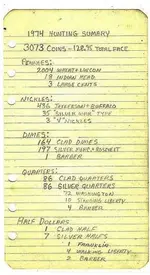 1974 HUNTING SUMARY
3073 COINS - 128.95 TOTAL FACE
PENNIES:
2004 WHEAT & LINCON
18 INDIAN HEAD
3 LARGE CENTS
NICKLES:
436 JEFFERSON & BUFFALO
35 "SILVER WAR" TYPE
3 "V" NICKLES
DIMES:
164 CLAD DIMES
197 SILVER MERC & ROOSEVELT
1 BARBER
QUARTERS:
86 CLAD QUARTERS
86 SILVER QUARTERS
72 WASHINGTON
10 STANDING LIBERTY
4 BARBER
HALF DOLLARS
1 CLAD HALF
7 SILVER HALFS
1 FRANKLIN
4 WALKING LIBERTY
2 BARBER